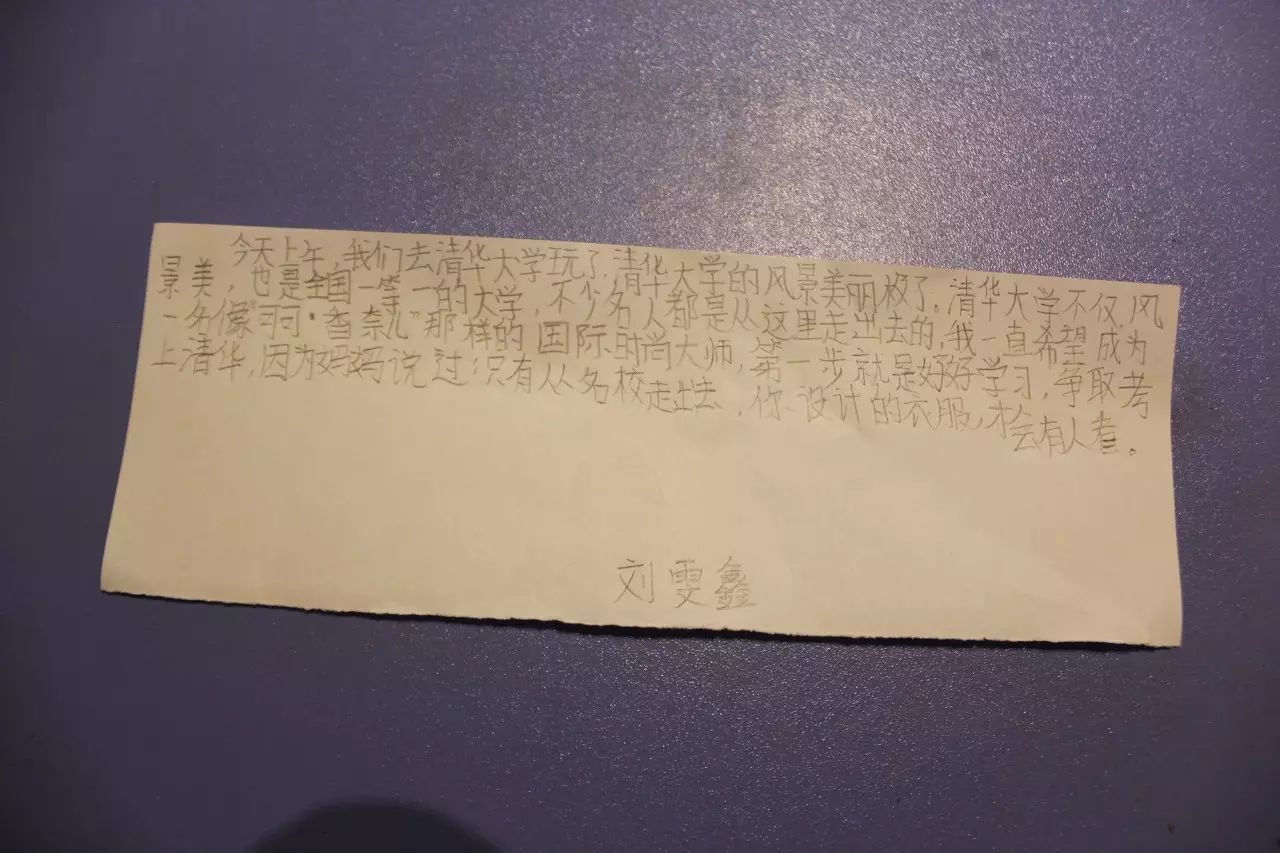 今天上午,我们去清华大学玩了,清华大学的风景美丽极了,清华大学不仅风
景美,也是全国一等一的大学,不少名人都是从这里走出去的,我一直希望成为
一名像“可可·香奈儿”那样的国际时尚大师,第一步就是好好学习,争取考
上清华,因为妈妈说过:只有从名校走出去,你设计的衣服,才会有人看。
刘雯鑫